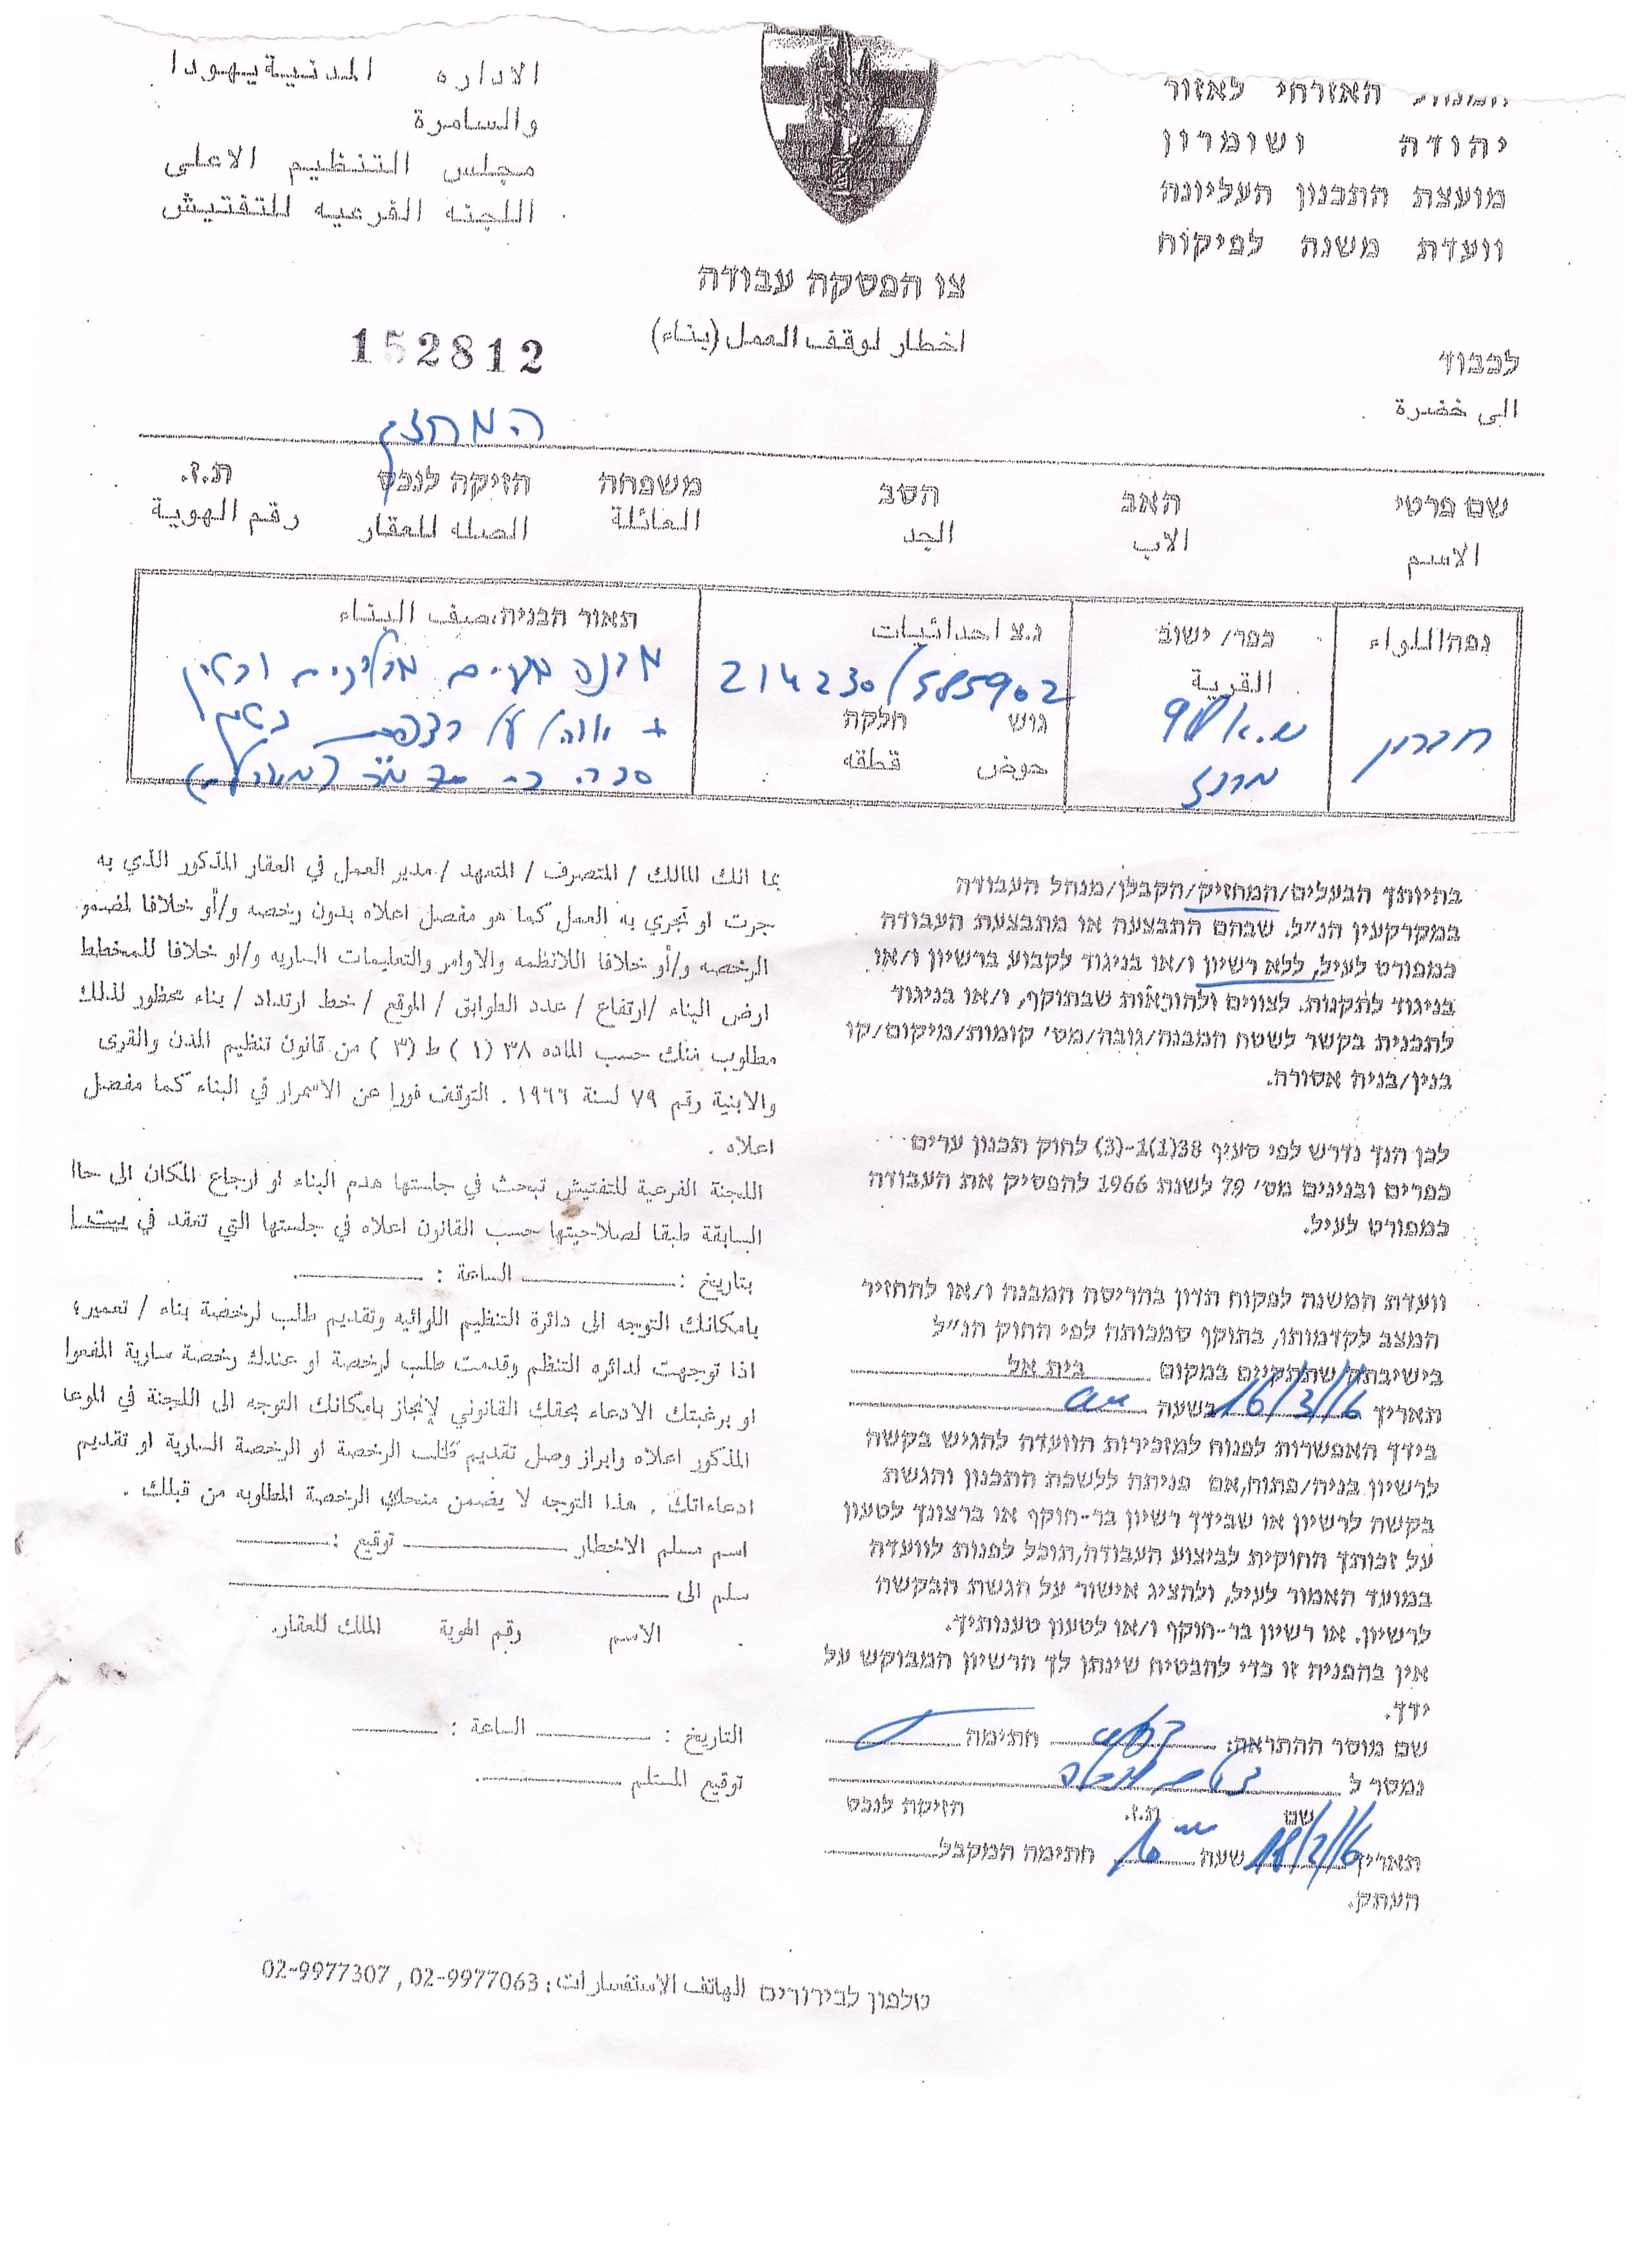 האזרחי לאזור
יהודה ושומרון
מועצת התכנון העליונה
וועדת משנה לפיקוח
الاداره المدنية يهودا
والسامرة
مجلس التنظيم الاعلى
اللجنه الفرعيه للتفتيش
צו הפסקה עבודה
اخطار لوقف العمل (بناء)
152812
לכבוד
الى حضرة
המחזיק
שם פרטי האב הסב משפחה חזיקה לנכס ת.ז.
الاسم الاب الجد العائلة الصله للعقار رقم الهوية
נפה اللواء
חברון
כפר/ ישוב
القرية
נ.צ احداثيات
214230/585902
גוש חלקה
حوض قطقه
תאור הבניה، صيف البناء
בהיותך הבעלים/המחזיק/הקבלן/מנהל העבודה
במקרקעין הנ״ל. שבהם התבצעה או מתבצעת העבודה
כמפורט לעיל, ללא רשיון ו/או בניגוד לקבוע ברשיון ו/או
בניגוד לתקנות. לצווים ולהוראות שבתוקף, ו/או בניגוד
לתבנית בקשר לשטח המבנה/גובה/מס׳ קומות/מיקום/קו
בנין/בניה אסורה.
לכן הנך נדרש לפי סעיף 38(1)1-(3) לחוק תכנון ערים
כפרים ובנינים מס׳ 79 לשנת 1966 להפסיק את העבודה
כמפורט לעיל.
וועדת המשנה לפקוח תדון בהריסת המבנה ו/או להחזיר
המצב לקדמותו, בתוקף סמכותה לפי החוק הנ״ל
בישיבתה שתתקיים במקום בית אל
תאריך 16/3/16 בשעה
בידך האפשרות לפנות למזכירות הוועדה להגיש בקשה
לרשיון בניה/פתוח,אם פניתה ללשכת התכנון והגשת
בקשה לרשיון או שבידך רשיון בר-תוקף או ברצונך לטעון
על זכותך החוקית לביצוע העבודה,תוכל לפנות לוועדה
במועד האמור לעיל, ולהציג אישור על הגשת הבקשה
לרשיון. או רשיון בר-תוקף ו/או לטעון טענותיך.
אין בהפניה זו כדי להבטיח שינתן לך הרשיון המבוקש על
ידך.
שם מוסר ההתראה: חתימה
נמסר ל
שם ת.ז. חזיקה לנכס
תאריך שעה חתימה המקבל
העתק.
بما انك المالك / المتصرف / المتعهد / مدير العمل في العقار المذكور الذي به
جرت او تجري به العمل كما هو مفصل اعلاه بدون رخصه و/أو خلافا لمضمو
الرخصه و/أو خلافا اللانظمه والاوامر والتعليمات الساريه و/او خلافا للمخطط
ارض البناء /ارتفاع / عدد الطوابق / الموقع / خط ارتداد / بناء محظور لذلك
مطلوب منك حسب الماده ٣٨ (١) ط (٣) من قانون تنظيم المدن والقرى
والابنية رقم ٧٩ لسنة ١٩٦٦ . التوقف فورا عن الاستمرار في البناء كما مفصل
اعلاه .
اللجنة الفرعية للتفتيش تبحث في جلستها هدم البناء او ارجاع المكان الى حاا
السابقة طبقا لصلاحيتها حسب القانون اعلاه في جلستها التي تعقد في بيت ا
بتاريخ : الساعة :
بامكانك التوجه الى دائرة التنظيم اللوائيه وتقديم طلب لرخصة بناء / تعمير؛
اذا توجهت لدائره التنظم وقدمت طلب لرخصة او عندك رخصة سارية المفعوا
او برغبتك الادعاء بحقك القانوني لإنجاز بامكانك التوجه الى اللجنة في الموعا
المذكور اعلاه وابراز وصل تقديم طلب الرخصة او الرخصة السارية او تقديم
ادعاءاتك . هذا التوجه لا يضمن منحك الرخصة المطلوبه من قبلك .
اسم مسلم الاخطار توقيع :
سلم الى
الاسم رقم الهوية المالك للعقار.
التاريخ : الساعة :
توقيع المستلم
טלפון לבירורים الهاتف الاستفسارات: 02-9977063 , 02-9977307